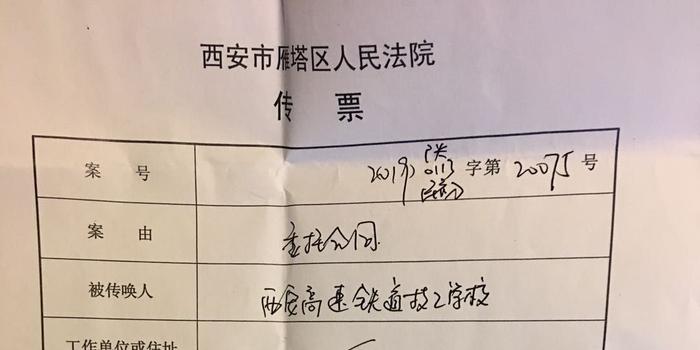 西安市雁塔区人民法院
传 票
案 号 (2019)陕0113民初字第20075号
案 由 委托合同
被传唤人 西安高速铁道技工学校
工作单位或住址